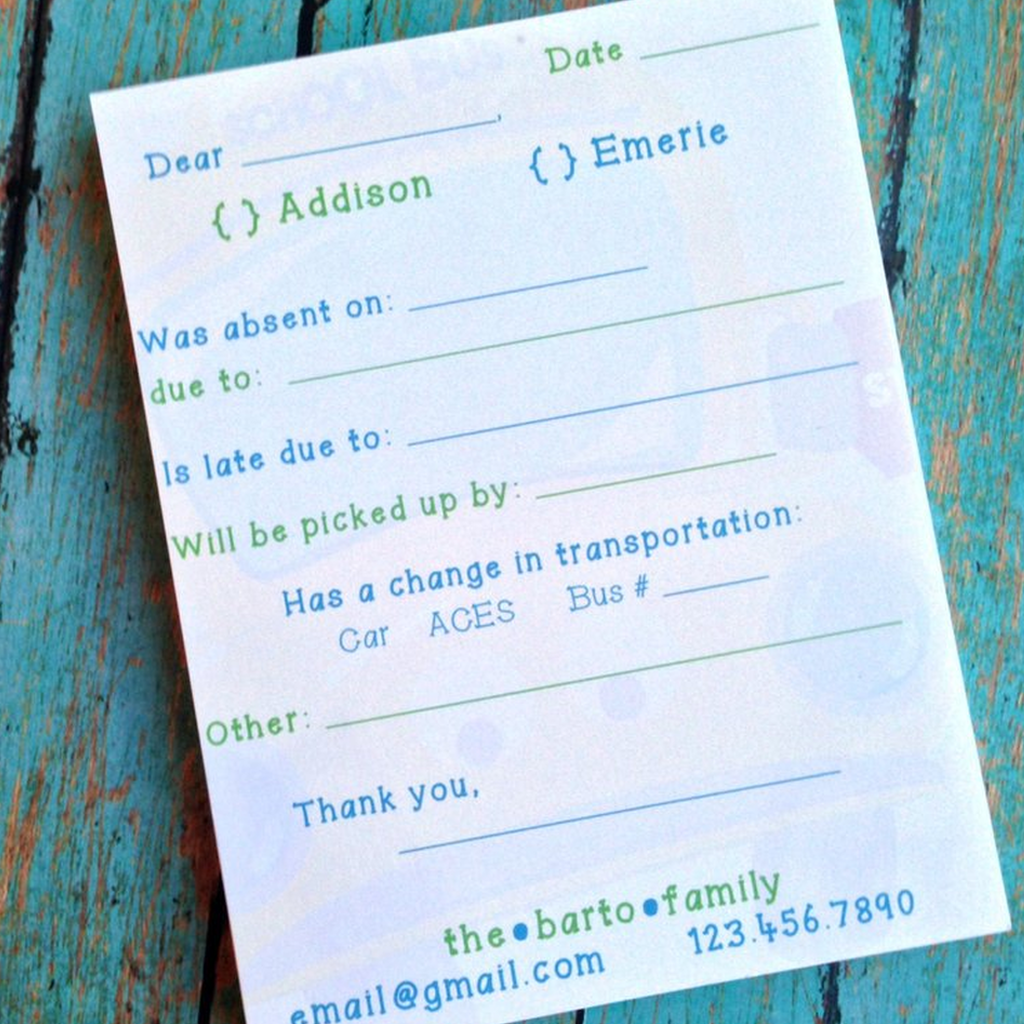 Date ____________
Dear ____________,
{ } Addison { } Emerie
Was absent on: ____________
due to: ____________
Is late due to: ____________
Will be picked up by: ____________
Has a change in transportation:
Car ACES Bus # ______
Other: ____________
Thank you,
____________
the•barto•family
email@gmail.com 123.456.7890
SCHOOL BUS
S